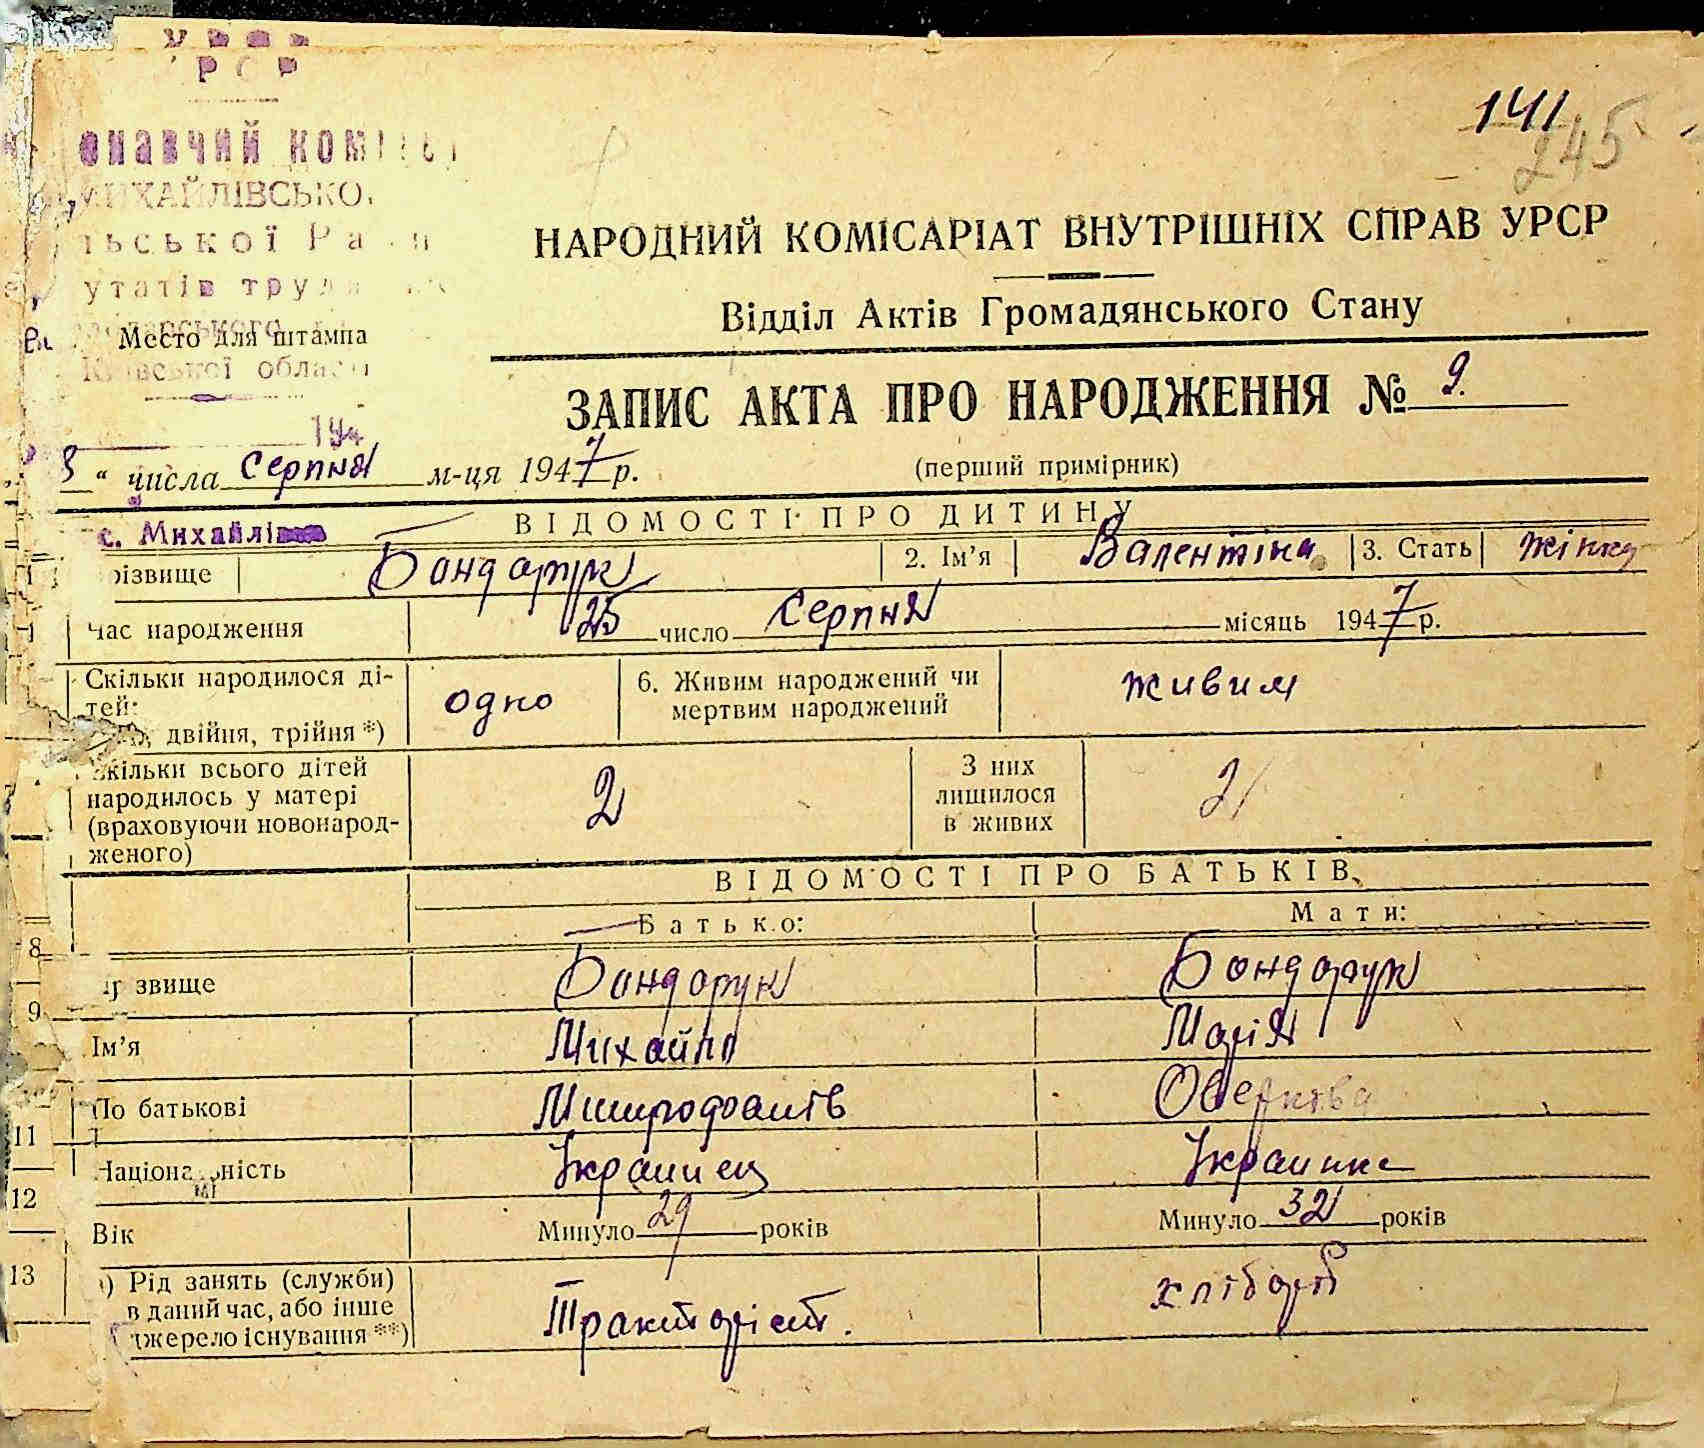 УРСР
РСР
онавчий коміт
МИХАЙЛІВСЬКО
льської Ра
утатів труд
Место для штампа
Київської області
194
141
245
НАРОДНИЙ КОМІСАРІАТ ВНУТРІШНІХ СПРАВ УРСР
Відділ Актів Громадянського Стану
ЗАПИС АКТА ПРО НАРОДЖЕННЯ № 9.
(перший примірник)
“ числа Серпня м-ця 1947 р.
с. Михайлі
ВІДОМОСТІ ПРО ДИТИНУ
різвище Бондарук 2. Ім’я Валентіна 3. Стать жінка
Час народження 25 число Серпня місяць 1947 р.
Скільки народилося ді-
тей:
двійня, трійня *) одно 6. Живим народжений чи
мертвим народжений живим
Скільки всього дітей
народилось у матері
(враховуючи новонарод-
женого) 2 З них
лишилося
в живих 2
ВІДОМОСТІ ПРО БАТЬКІВ
Батько: Мати:
8
звище Бондарук Бондарук
9
Ім’я Михайло Марія
По батькові
11
Національність Украинец Украинка
12
Вік Минуло 29 років Минуло 32 років
13
) Рід занять (служби)
в даний час, або інше
джерело існування **) Тракторіст. хлібороб